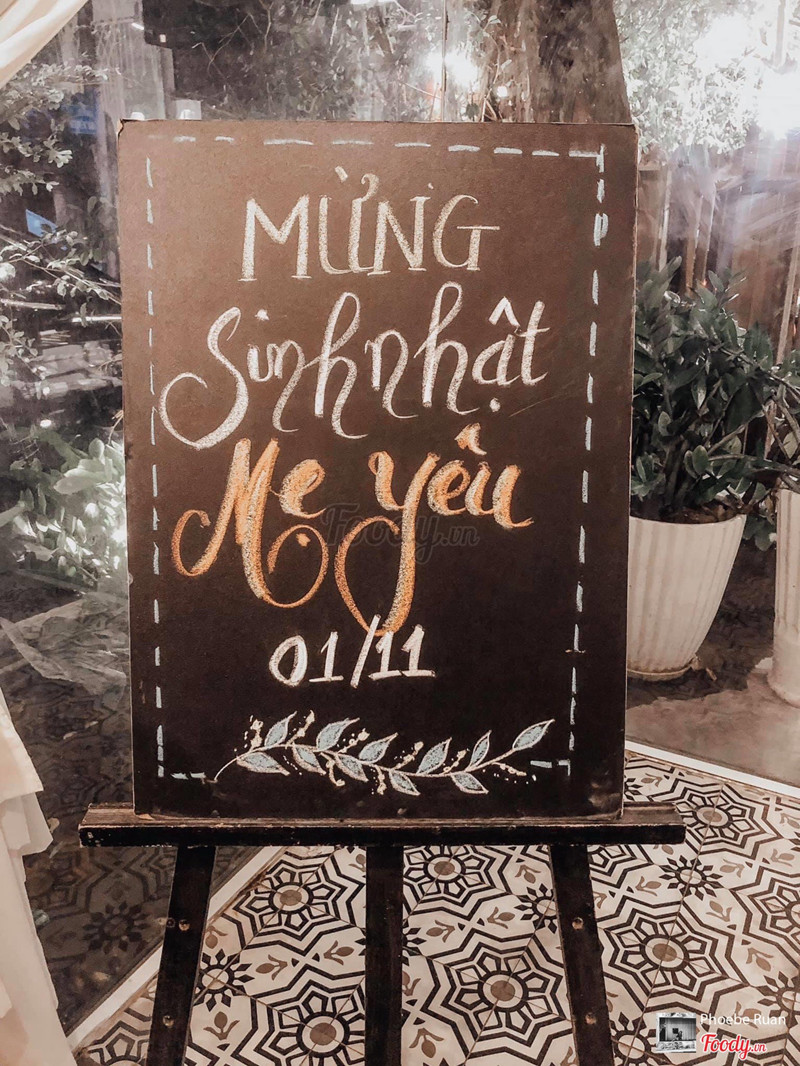 MỪNG
Sinh nhật
Mẹ yêu
Foody.vn
01/11
Phoebe Ruan
Foody.vn